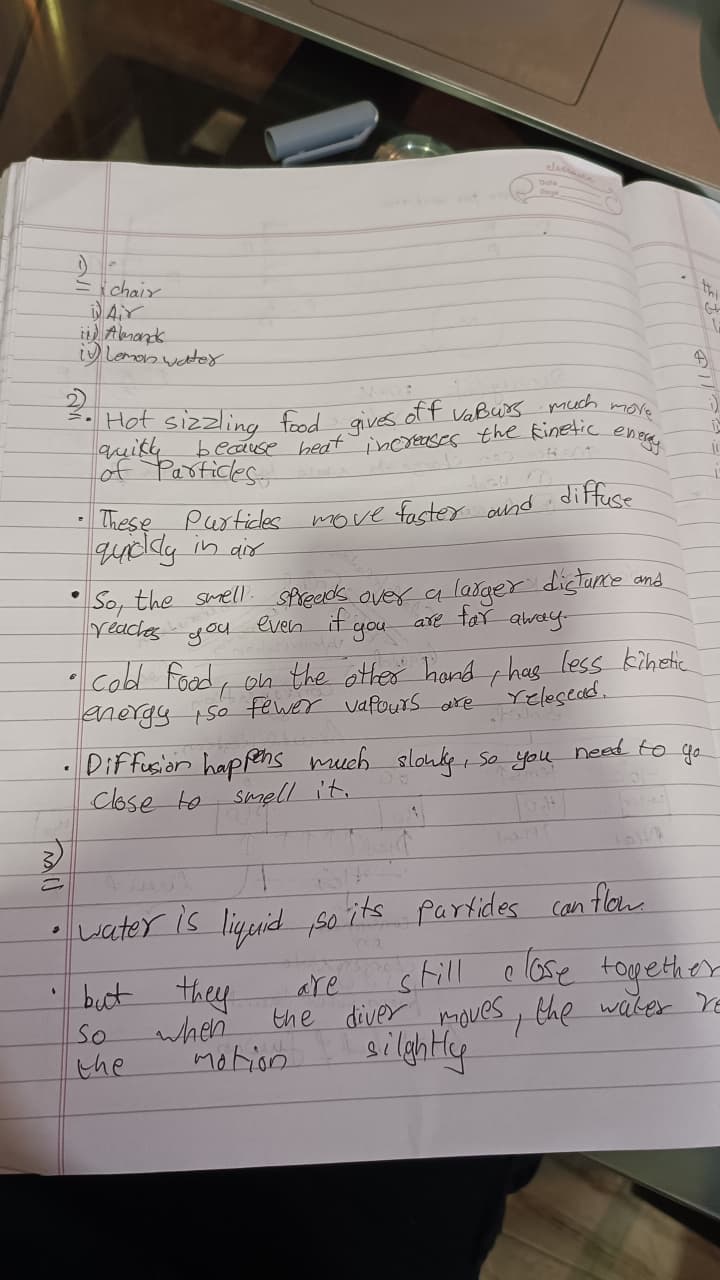 classmate
Date
Page
1)
= i chair
ii) Air
iii) Almonds
iv) Lemon water
2)
=. Hot sizzling food gives off vaBurs much more
quikly because heat increases the kinetic energy
of Particles.
• These Particles move faster and diffuse
quickly in air
• So, the smell spreads over a larger distance and
reaches you even if you are far away.
• Cold food, on the other hand, has less kinetic
energy, so fewer vapours are relesead.
• Diffusion happens much slowly, so you need to go
close to smell it.
3)
=
• water is liquid, so its particles can flow.
• but they are still close together
so when the diver moves, the water re
the motion silghtly
4)
=